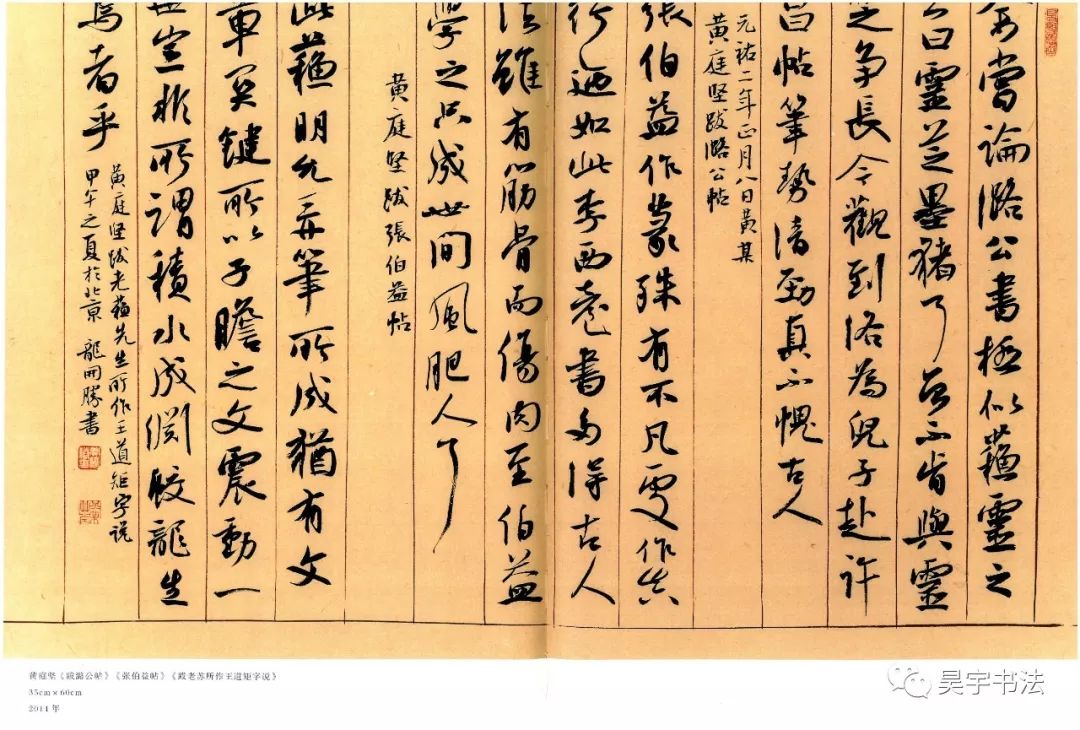 嘗論潞公書極似蘇靈之
公曰靈芝墨豬了 不肯與靈
芝爭長今觀到洛為兒子赴許
昌帖筆勢清勁真不愧古人
元祐二年正月八日黃某
黃庭堅跋潞公帖
張伯益作篆殊有不凡處作真
行迺如此李西臺書 得古人
法雖有筋骨而傷肉至伯益
學之只成世間風肥人了
黃庭堅跋張伯益帖
此蘇明允弄筆所成猶有文
章關鍵所以子瞻之文震動一
世豈非所謂積水成淵蛟龍生
焉者乎
黃庭堅跋老蘇先生所作王道矩字說
甲午之夏於北京 龍開勝書
黄庭坚《跋潞公帖》《张伯益帖》《跋老苏所作王道矩字说》
35cm×60cm
2014 年
昊宇书法